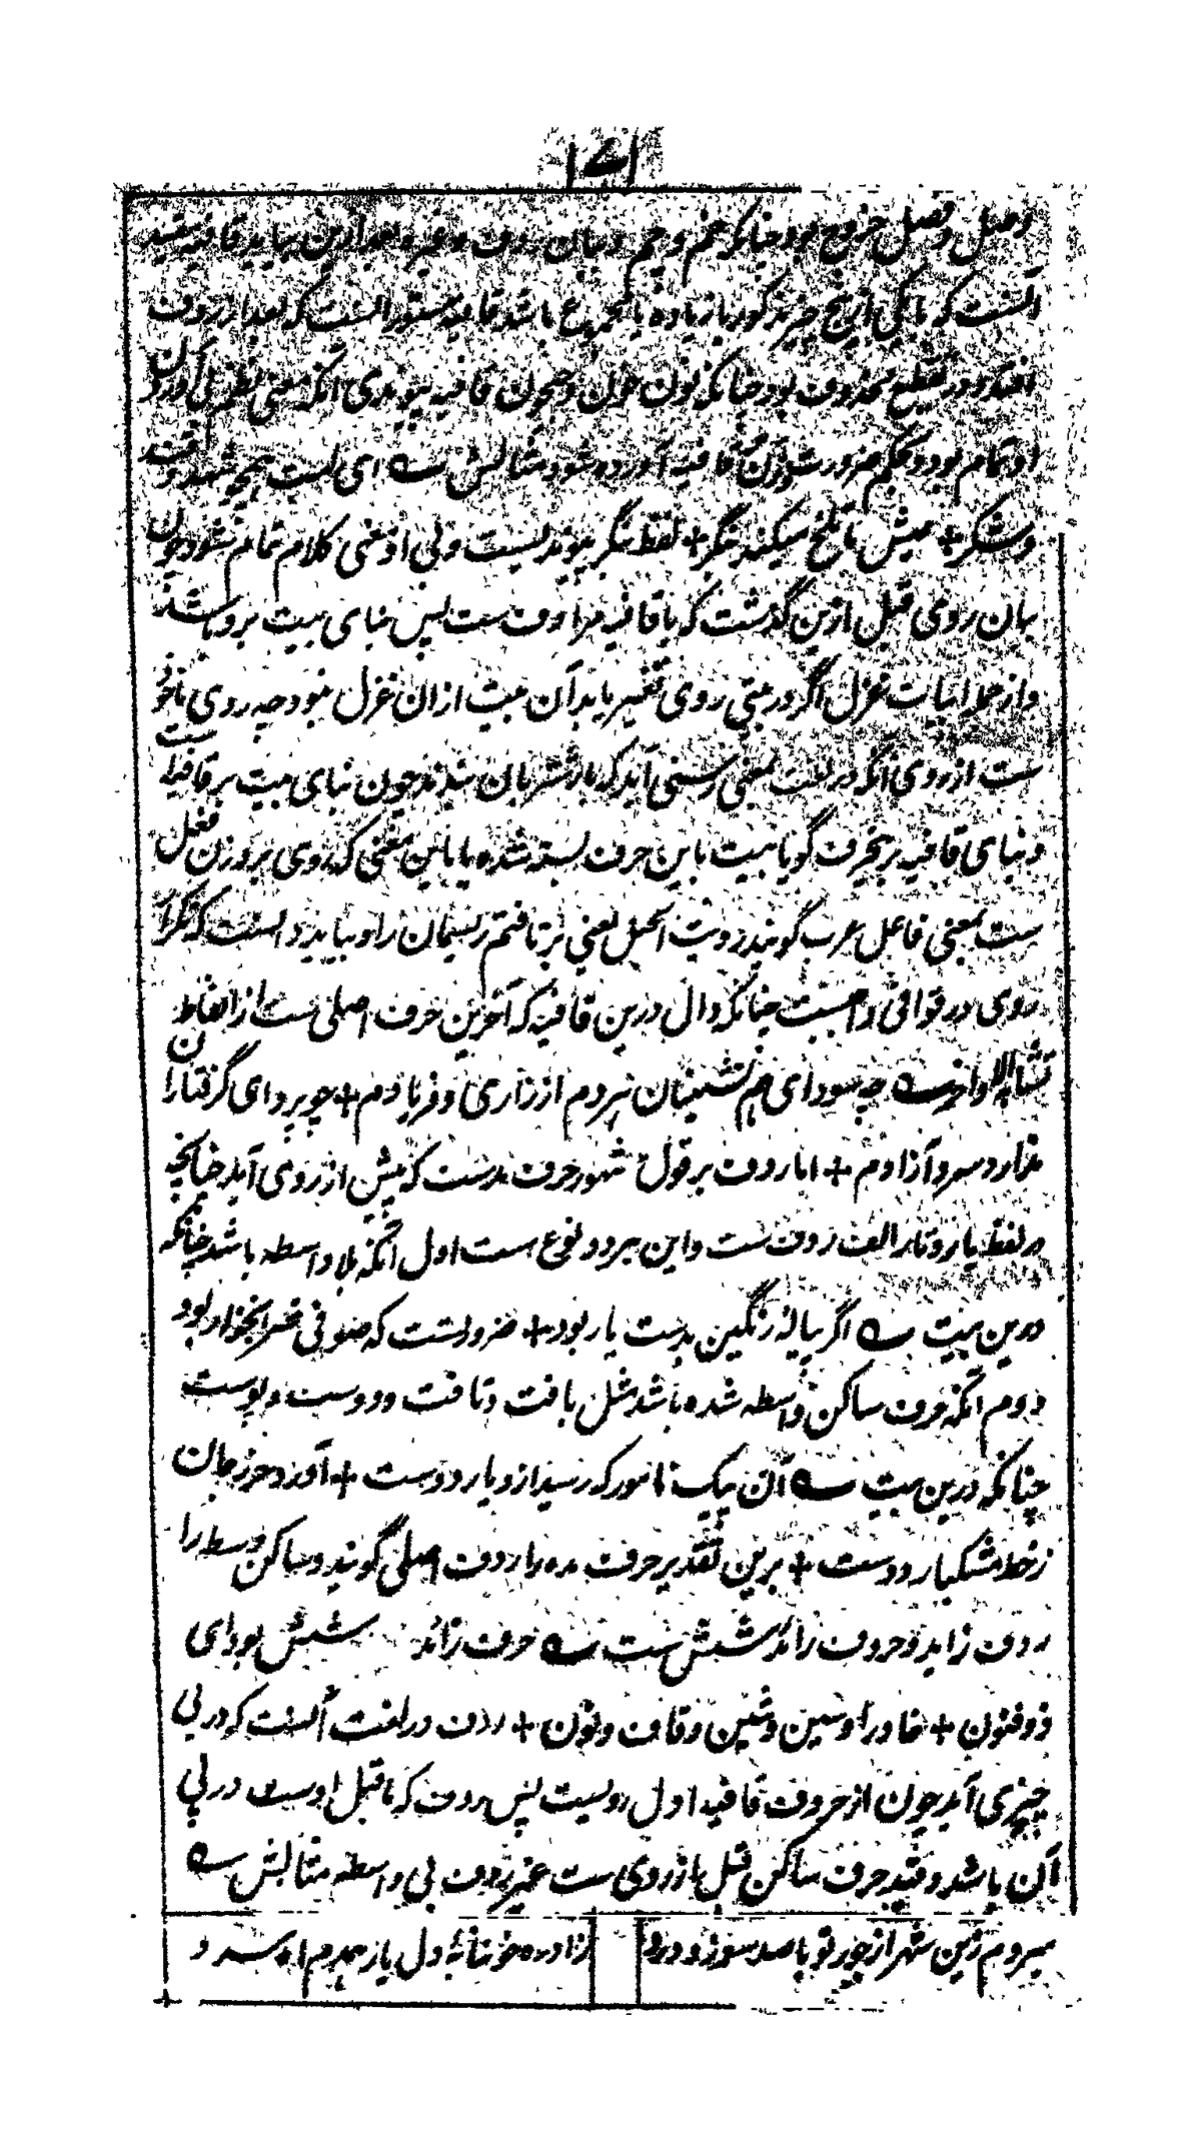 وصل و فصل خروج بود چنانکه خم و چم و بیان ردف و غیره بعد ازین بیاید قافیه مقید
آنست که با یکی ازین چیز مذکور بازیاده یا مجموع باشد قافیه مستور آنست که بعد از ردف
افتد و در تقطیع محذوف بود چنانکه نون خون و جیحون قافیه پیوندی آنکه معنی نظم بی آوردن
او تمام نبود و بحکم ضرورت قافیه آورده شود مثالش ای لبت همچو شهد و قند
و شکر + عیش ما تلخ میکند بنگر + لفظ بنگر پیوندیست و بی او معنی کلام تمام نشود چون
بیان روی قبل ازین گذشت که با قافیه مرادف ست پس بنای بیت برو باشد
و از جمله ابیات غزل اگر در بیتی روی تغییر یابد آن بیت از ان غزل نبود چه روی ماخوذ
ست از روی آنکه در لغت بمعنی رسنی آید که بار شتر بان بندند چون بنای بیت بر قافیه است
و بنای قافیه بر یحرف گویا بیت باین حرف بسته شده یا باین معنی که روی بر وزن فعل
ست بمعنی فاعل عرب گویند رویت الحبل یعنی برتافتم ریسمان را و بباید دانست که تکرار
روی در قوافی واجبست چنانکه دال درین قافیه که آخرین حرف اصلی ست از الفاظ
چه سود ای هم نشینان هر دم از زاری و فریادم + چو پروای گرفتاران
ندارد سرو آزادم + اما ردف بر قول مشهور حرف مدست که پیش از روی آید چنانچه
در لفظ یار و تار الف ردف ست و این بر دو نوع ست اول آنکه بلا واسطه باشد چنانکه
درین بیت اگر پیالهٔ رنگین بدست یار بود + ضرورتست که صوفی شرابخوار بود
دوم آنکه حرف ساکن واسطه شده باشد مثل بافت و تافت و دوست و پوست
چنانکه درین بیت آن پیک نامور که رسید از دیار دوست + آورد حرز جان
ز خط مشکبار دوست + برین تقدیر حرف مده را ردف اصلی گویند و ساکن وسط را
ردف زاید و حروف زائد شش ست حرف زائد شش بود ای
ذوفنون + خا و را و سین و شین و فا و نون + ردف در لغت آنست که در پی
چیزی آید چون از حروف قافیه اول رویست پس ردف که ماقبل اوست در پی
آن باشد و قید حرف ساکن قبل از روی ست غیر ردف بی واسطه مثالش
میروم زین شهر از جور تو با صد سوز و درد زاد ره خونابهٔ دل یار همدم آه سرد